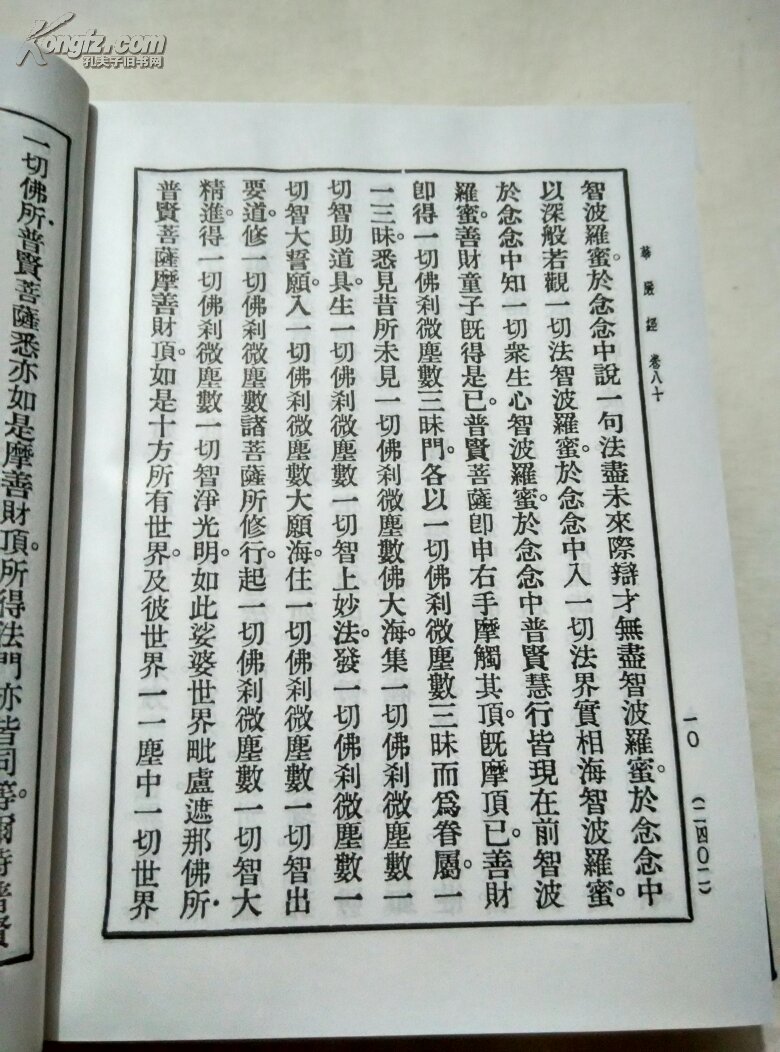 Kongfz.com
孔夫子旧书网
華嚴經 卷八十
一〇
(二四〇二)
智波羅蜜。於念念中說一句法盡未來際辯才無盡智波羅蜜。於念念中
以深般若觀一切法智波羅蜜。於念念中入一切法界實相海智波羅蜜。
於念念中知一切衆生心智波羅蜜。於念念中普賢慧行皆現在前智波
羅蜜。善財童子旣得是已。普賢菩薩卽申右手摩觸其頂。旣摩頂已。善財
卽得一切佛刹微塵數三昧門。各以一切佛刹微塵數三昧而爲眷屬。一
一三昧。悉見昔所未見一切佛刹微塵數佛大海。集一切佛刹微塵數一
切智助道具。生一切佛刹微塵數一切智上妙法。發一切佛刹微塵數一
切智大誓願。入一切佛刹微塵數大願海。住一切佛刹微塵數一切智出
要道。修一切佛刹微塵數諸菩薩所修行。起一切佛刹微塵數一切智大
精進。得一切佛刹微塵數一切智淨光明。如此娑婆世界毗盧遮那佛所.
普賢菩薩摩善財頂。如是十方所有世界。及彼世界一一塵中一切世界
一切佛所.普賢菩薩悉亦如是摩善財頂。所得法門亦皆同等。爾時普賢